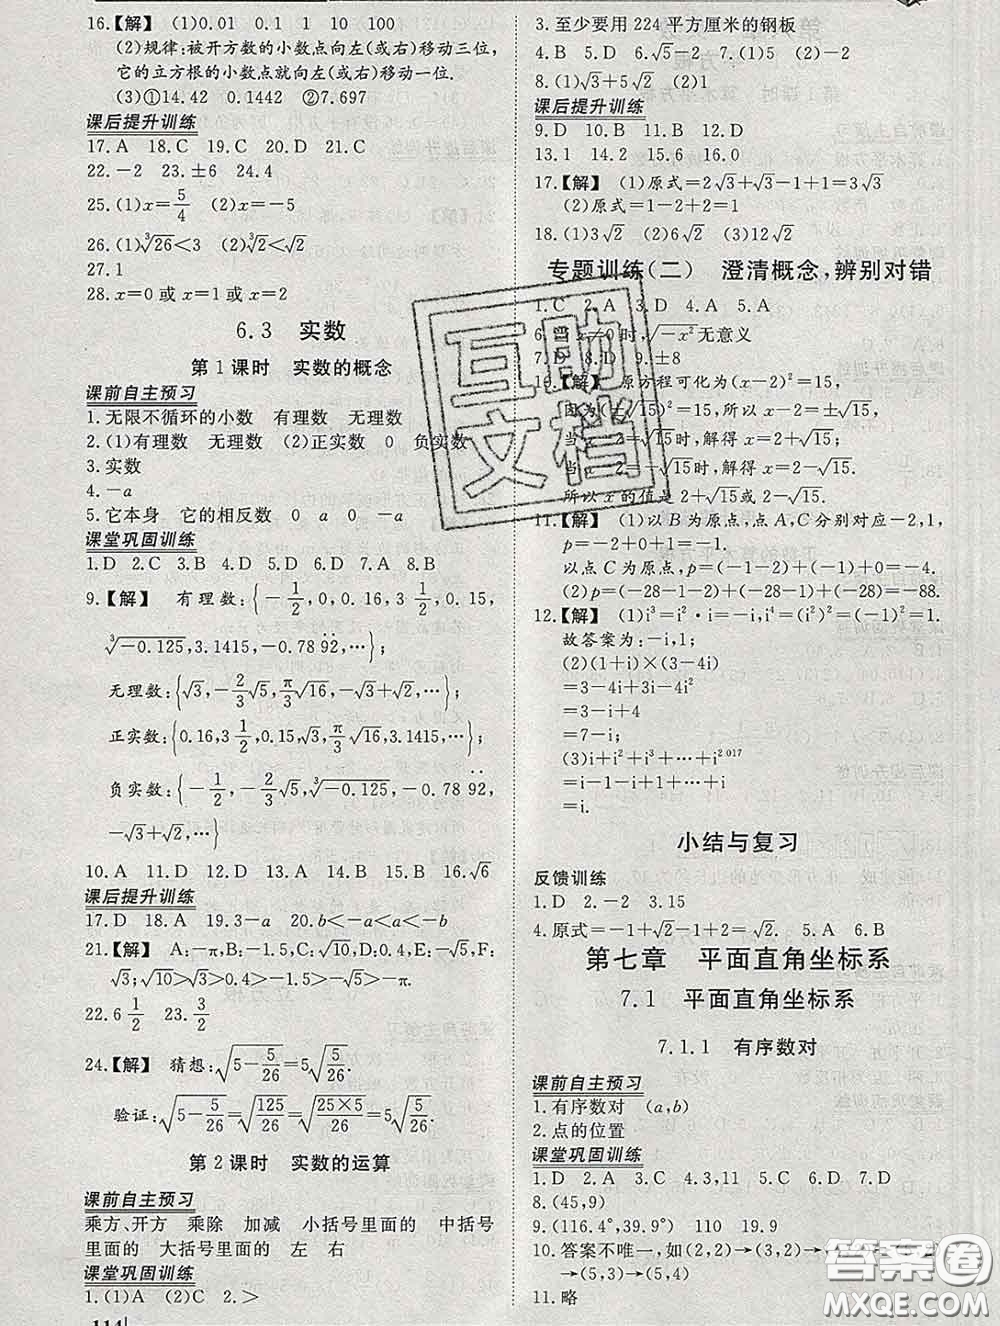 16.【解】 (1)0.01 0.1 1 10 100
(2)规律:被开方数的小数点向左(或右)移动三位,
它的立方根的小数点就向左(或右)移动一位.
(3)①14.42 0.1442 ②7.697
课后提升训练
17.A 18.C 19.C 20.D 21.C
22.-2 23.±6 24.4
25.(1)x=5/4 (2)x=-5
26.(1)∛26<3 (2)∛2<√2
27.1
28.x=0或x=1或x=2
6.3 实数
第1课时 实数的概念
课前自主预习
1.无限不循环的小数 有理数 无理数
2.(1)有理数 无理数 (2)正实数 0 负实数
3.实数
4.-a
5.它本身 它的相反数 0 a 0 -a
课堂巩固训练
1.D 2.C 3.B 4.D 5.A 6.D 7.A 8.B
9.【解】 有理数:{-1/2,0,0.16,3 1/2,0.15,
∛-0.125,3.1415,-0.78 9̇2̇,…};
无理数:{√3,-2/3√5,π/3√16,-√3+√2,…};
正实数:{0.16,3 1/2,0.15,√3,π/3√16,3.1415,…};
负实数:{-1/2,-2/3√5,∛-0.125,-0.78 9̇2̇,
-√3+√2,…}
10.A 11.D 12.A 13.D 14.B 15.B 16.√6
课后提升训练
17.D 18.A 19.3-a 20.b<-a<a<-b
21.【解】 A:-π,B:-1.5,C:√10,D:0.4,E:-√5,F:
√3;√10>√3>0.4>-1.5>-√5>-π
22.6 1/2 23.3/2
24.【解】 猜想:√(5-5/26)=5√(5/26).
验证:√(5-5/26)=√(125/26)=√(25×5/26)=5√(5/26).
第2课时 实数的运算
课前自主预习
乘方、开方 乘除 加减 小括号里面的 中括号
里面的 大括号里面的 左 右
课堂巩固训练
1.(1)A (2)C 2.>
114
3.至少要用224平方厘米的钢板
4.B 5.D 6.√5-√2 7.(1)5 (2)-2
8.(1)√3+5√2 (2)1
课后提升训练
9.D 10.B 11.B 12.D
13.1 14.2 15.6 16.0
17.【解】 (1)原式=2√3+√3-1+1=3√3
(2)原式=1-2+2=1
18.(1)2√3 (2)6√3 (3)12√3
专题训练(二) 澄清概念,辨别对错
1.C 2.A 3.D 4.A 5.A
6.当x=0时,√-x²无意义
7.D 8.D 9.±8
10.【解】 原方程可化为(x-2)²=15,
因为(±√15)²=15,所以x-2=±√15,
当x-2=√15时,解得x=2+√15,
当x-2=-√15时,解得x=2-√15,
所以x的值是2+√15或2-√15.
11.【解】 (1)以B为原点,点A,C分别对应-2,1,
p=-2+0+1=-1.
以点C为原点,p=(-1-2)+(-1)+0=-4.
(2)p=(-28-1-2)+(-28-1)+(-28)=-88.
12.【解】 (1)i³=i²·i=-i,i⁴=(i²)²=(-1)²=1.
故答案为:-i,1;
(2)(1+i)×(3-4i)
=3-4i+3i-4i²
=3-i+4
=7-i;
(3)i+i²+i³+…+i²⁰¹⁷
=i-1-i+1+…+i
=i.
小结与复习
反馈训练
1.D 2.-2 3.15
4.原式=-2√2+1+2√2-1+√2=√2. 5.A 6.B
第七章 平面直角坐标系
7.1 平面直角坐标系
7.1.1 有序数对
课前自主预习
1.有序数对 (a,b)
2.点的位置
课堂巩固训练
1.D 2.A 3.C 4.3,11 5.D 6.C 7.D
8.(45,9)
9.(116.4°,39.9°) 110 19.9
10.答案不唯一,如(2,2)→(3,2)→
→(5,3)→(5,4)
11.略
互助
文档
答案圈
MXQE.COM